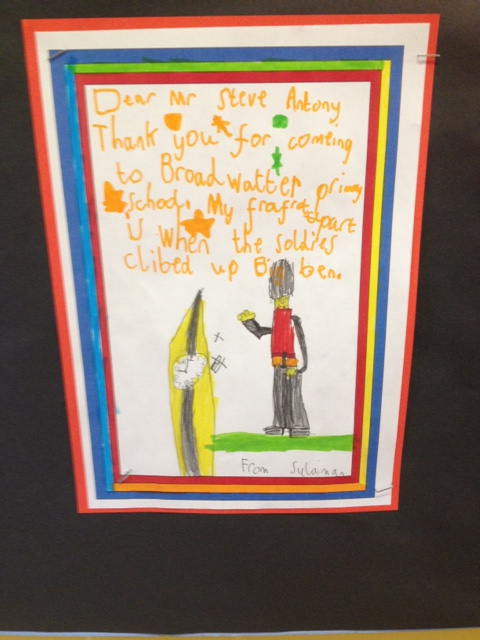 Dear Mr Steve Antony
Thank you for comeing
to Broadwatter primy
school. My frafrat part
is when the soldies
clibed up Big ben.
From Sulaiman